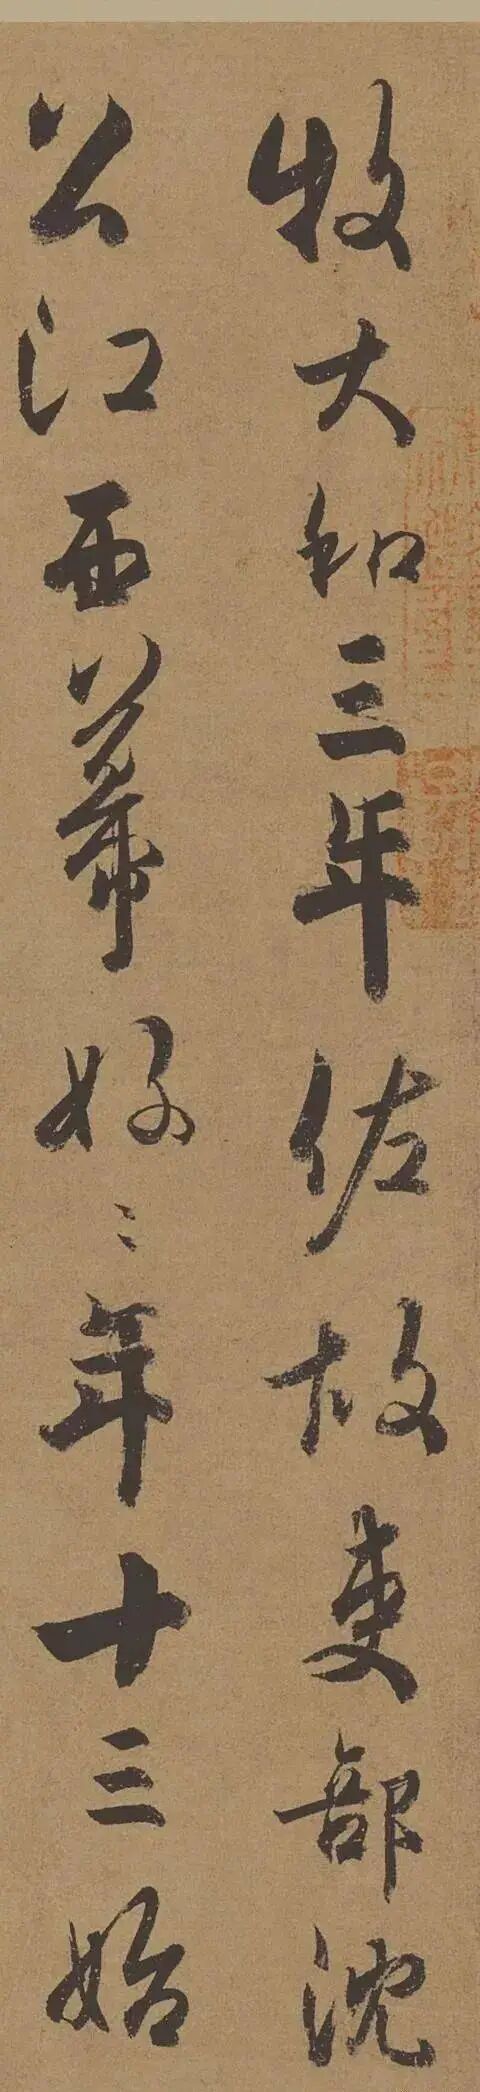 牧大和三年佐故吏部沈
公江西幕好〻年十三始